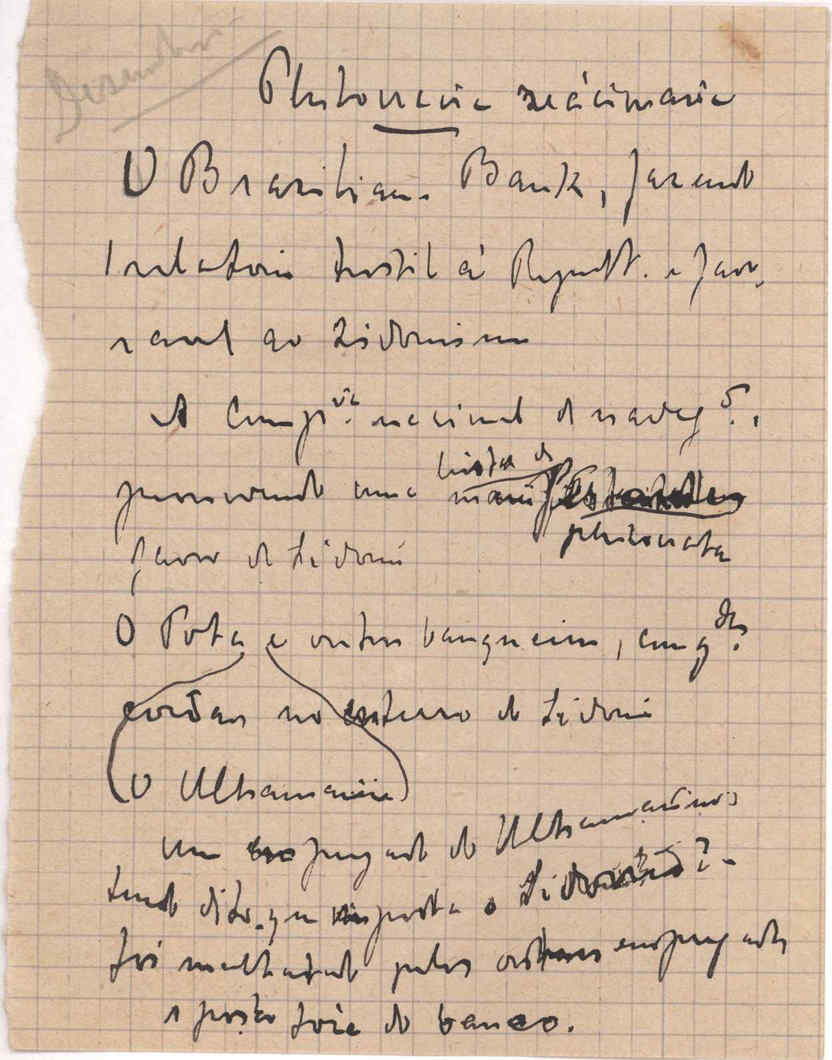 Desembro
Plutocracia reácionaria
O Brasilian Bank, fazendo
1 relatorio hostil á Republ. e favo-
ravel ao Sidonismo
A Comp.via nacional de naveg.ão,
promovendo uma lista de
favor de Sidonio plutocrata
O Pota e outros banqueiros, com gdes
corôas no enterro de Sidonio
(O Ultramarino)
Um empregado do Ultramarino
tendo dito que importa o Sidonio? -
foi maltratado pelos outros empregados
e posto fóra do banco.